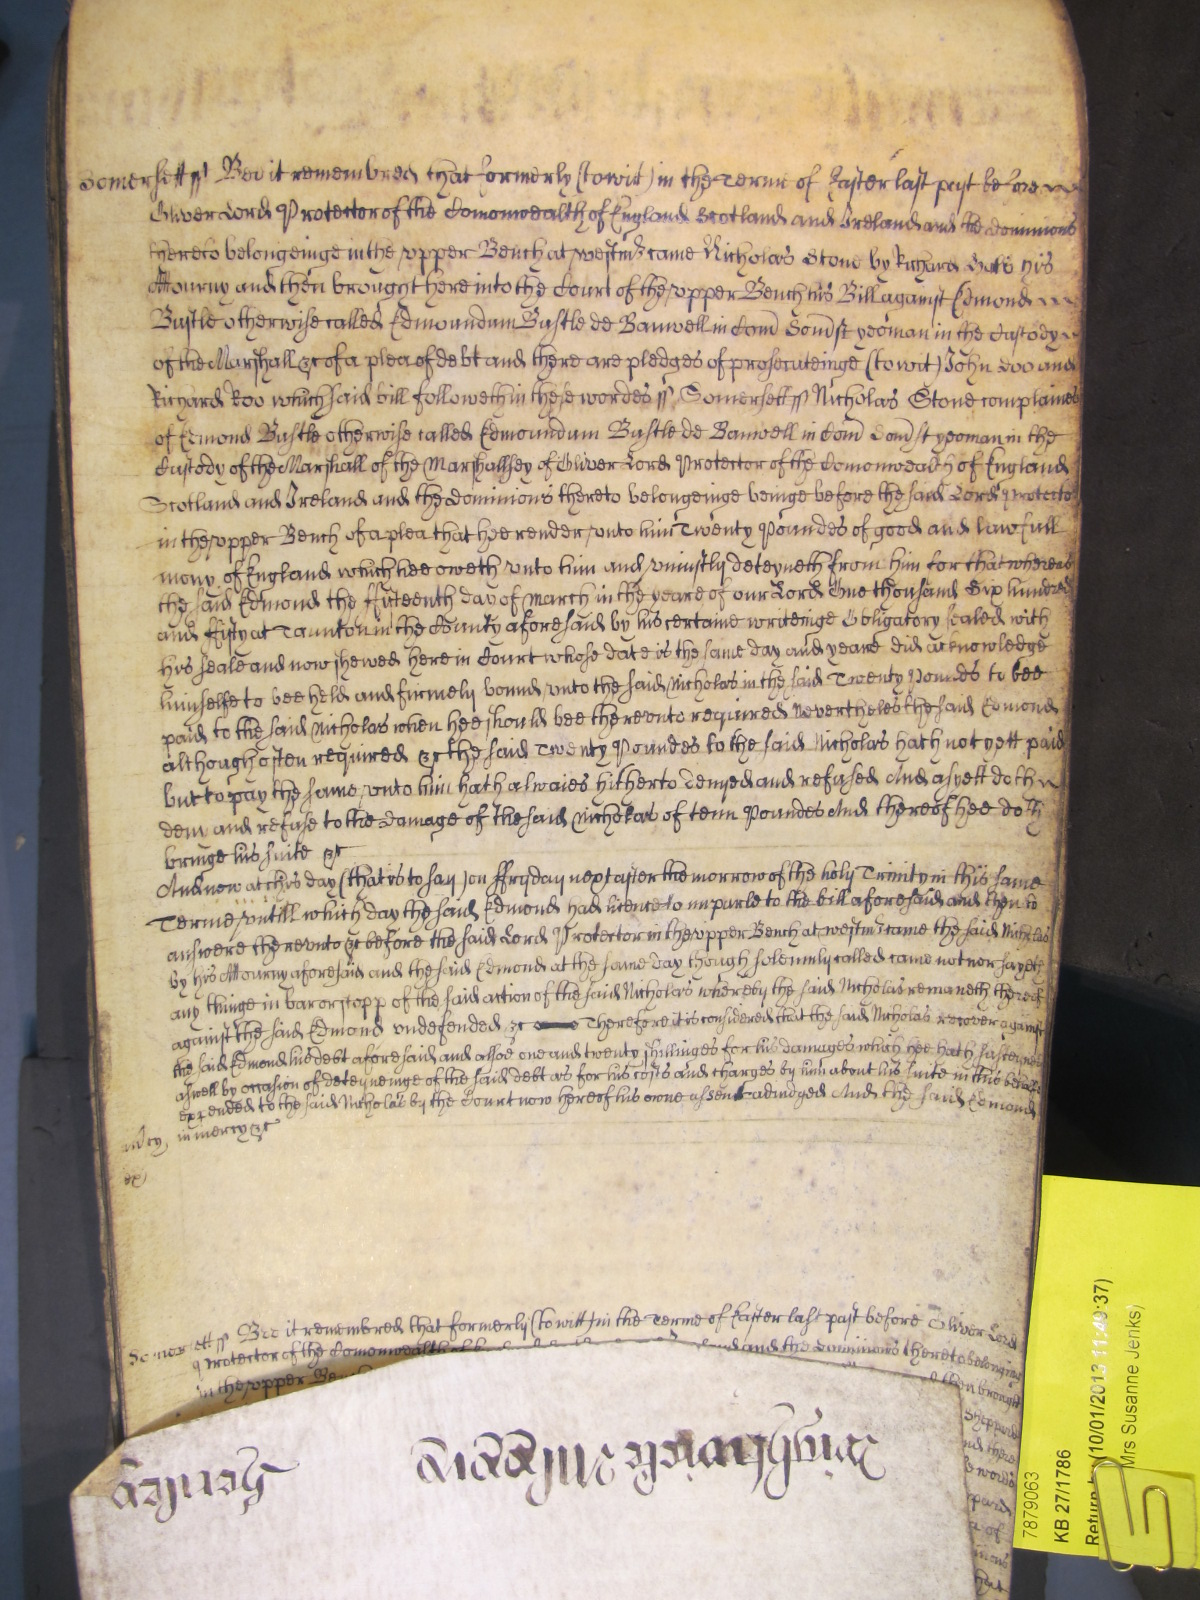 Somersett ss Bee it remembred that formerly (to wit) in the Terme of Easter last past before
Oliver Lord Protector of the Comonwealth of England Scotland and Ireland and the dominions
thereto belongeinge in the upper Bench at Westmr came Nicholas Stone by Richard his
Attourny and then brought here into the Court of the upper Bench his Bill against Edmond
Bustle otherwise called Edmoundum Bustle de Banwell in Com Somst yeoman in the Custody
of the Marshall &c of a plea of debt and there are pledges of prosecuteinge (to wit) John Doo and
Richard Roo which said bill followeth in these wordes ss Somersett ss Nicholas Stone complaines
of Edmond Bustle otherwise called Edmoundum Bustle de Banwell in Com Somst yeoman in the
Custody of the Marshall of the Marshallsey of Oliver Lord Protector of the Comonwealth of England
Scotland and Ireland and the dominions thereto belongeinge beinge before the said Lord Protector
in the upper Bench of a plea that hee render unto him Twenty Poundes of good and lawfull
mony of England which hee oweth unto him and uniustly deteyneth from him for that whereas
the said Edmond the ffifteenth day of March in the yeare of our Lord One thousand Six hundred
and ffifty at Taunton in the County aforesaid by his certaine writeinge Obligatory sealed with
his seale and now shewed here in Court whose date is the same day and yeare did acknowledge
himselfe to bee held and firmely bound unto the said Nicholas in the said Twenty Poundes to bee
paid to the said Nicholas when hee should bee thereunto required Neverthelesse the said Edmond
although often required &c the said Twenty Poundes to the said Nicholas hath not yett paid
but to pay the same unto him hath alwaies hitherto denyed and refused And as yett doth
deny and refuse to the damage of the said Nicholas of tenn Poundes And thereof hee doth
bringe his suite &c
And now at this day (that is to say) on ffryday next after the morrow of the holy Trinity in this same
Terme untill which day the said Edmond had licence to imparle to the bill aforesaid and then to
answere thereunto &c before the said Lord Protector in the upper Bench at Westmr came the said Nicholas
by his Attourny aforesaid and the said Edmond at the same day though solemnly called came not nor sayeth
any thinge in barr or stopp of the said action of the said Nicholas whereby the said Nicholas remaneth thereof
against the said Edmond undefended &c Therefore it is considered that the said Nicholas recover against
the said Edmond his debt aforesaid and allsoe one and twenty shillinges for his damages which hee hath susteyned
aswell by occasion of deteyneinge of the said debt as for his costs and charges by him about his suite in this behalfe
expended to the said Nicholas by the Court now here of his owne assent adiudged And the said Edmond
in mercy &c
Somersett ss Bee it remembred that formerly (to witt) in the Terme of Easter last past before Oliver Lord
Protector of the Comonwealth and the dominions thereto belonging
in the upper Bench then brought
7879063
KB 27/1786
Return (10/01/2013 11:49:37)
Mrs Susanne Jenks)